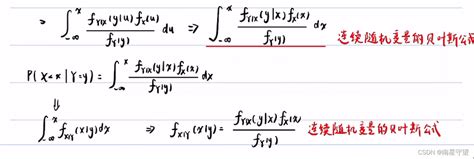 = ∫_{-∞}^{x} f_{Y|X}(y|u) f_X(u) / f_Y(y) du ⇒ ∫_{-∞}^{x} f_{Y|X}(y|x) f_X(x) / f_Y(y) dx 连续随机变量的贝叶斯公式
P(X<x|Y=y) = ∫_{-∞}^{x} f_{Y|X}(y|x) f_X(x) / f_Y(y) dx
⇓
∫_{-∞}^{x} f_{X|Y}(x|y) dx ⇒ f_{X|Y}(x|y) = f_{Y|X}(y|x) f_X(x) / f_Y(y) 连续随机变量的贝叶斯公式